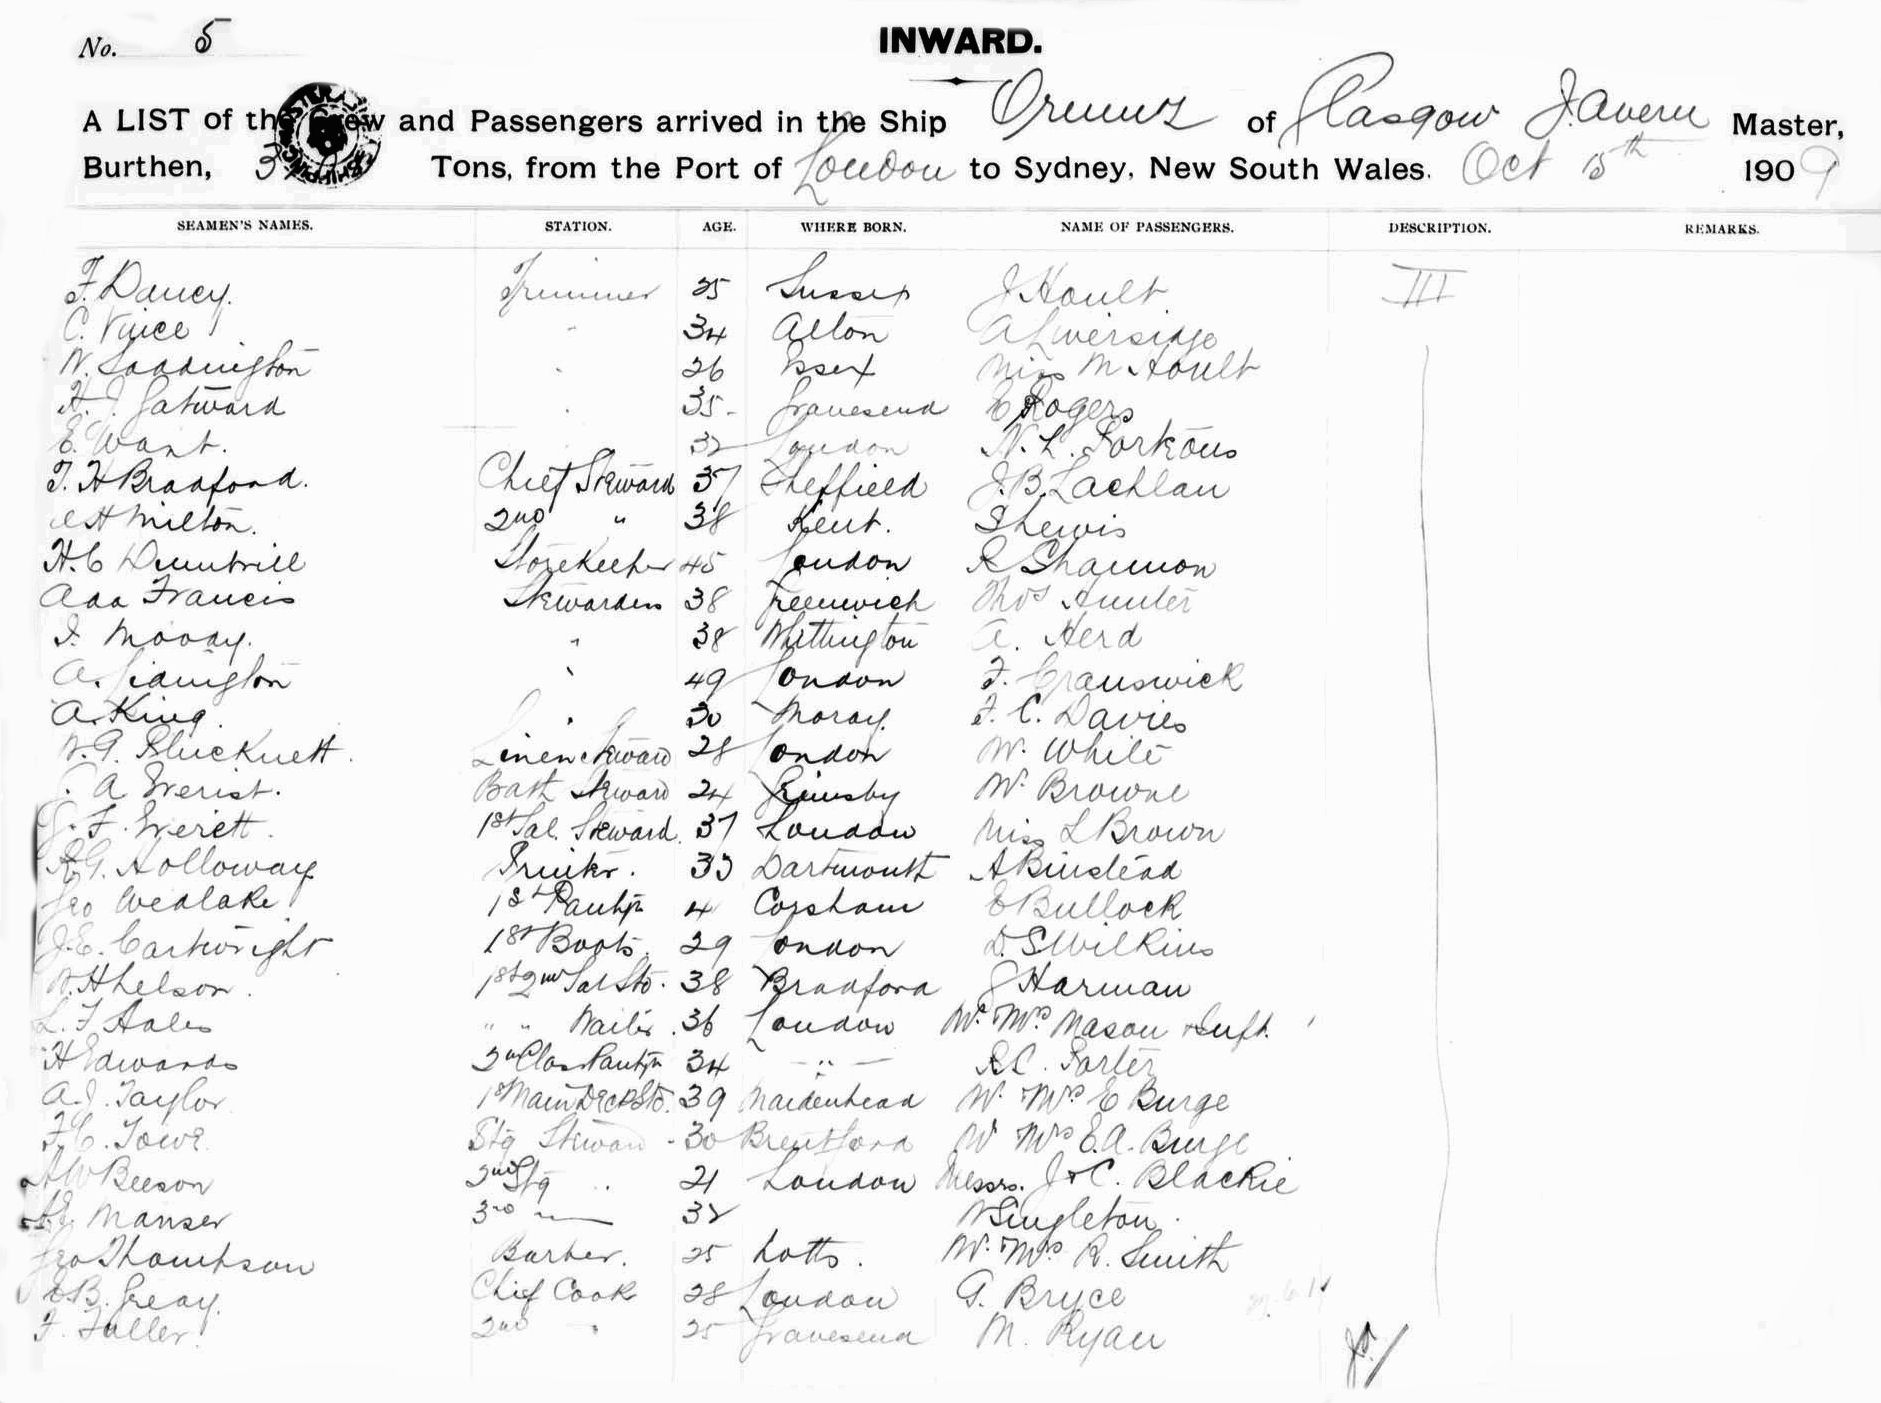 No. 5
INWARD.
A LIST of the Crew and Passengers arrived in the Ship Ormuz of Glasgow J. Avern Master,
Burthen, Tons, from the Port of London to Sydney, New South Wales. Oct 15th 1909
SEAMEN'S NAMES. STATION. AGE. WHERE BORN. NAME OF PASSENGERS. DESCRIPTION. REMARKS.
F. Dancy. Trimmer 25 Sussex J Hoult III
C. Vince " 34 Alton A Liversidge
W. Saddington " 26 Essex Miss M Hoult
H. J. Gatward " 35 - Gravesend E Rogers
E. Want. 32 London N. L. Porkous
T. H Bradford. Chief Steward 37 Sheffield J. B. Lachlan
H Milton. 2nd " 38 Kent. Shewis
H. C Dumbrill Storekeeper 45 London R Shannon
Ada Francis Stewardess 38 Greenwich Thos Hunter
I. Moody. " 38 Whittington A. Herd
A. Lidington " 49 London F. Cranswick
A. King. " 30 Moray. F. C. Davies
W. G. Plucknett. Linen Steward 28 London W. White
A Everist. Bath Steward 24 Grimsby W. Browne
G. F. Everett. 1st Sal. Steward. 37 London Miss L Brown
R. G. Holloway Printer. 33 Dartmouth A Binstead
Geo Wedlake 1st Pantry 4 Corsham E Bullock
J. E. Cartwright 1st Boots. 29 London D. S Wilkins
W. H Nelson. 1st 2nd Sal Std. 38 Bradford J Harman
L. F Hales " " Waiter. 36 London Mr. Mrs. Mason & Inft.
H Edwards 2nd Class Pantry 34 — " — R. C. Porter
A. J. Taylor 1st Main Deck Std. 39 Maidenhead Mr. Mrs E Burge
F. C. Towe Stg Steward - 30 Brentford Mr Mrs E. A. Burge
A W Beeson 2nd Stg " 21 London Messrs. J & C. Blackie
Manser 3rd — 32 N Singleton.
Geo Thompson Barber. 25 Notts. Mr. Mrs R. Smith
B. Greay. Chief Cook 28 London G. Bryce
F. Fuller. 2nd " 25 Gravesend M. Ryan